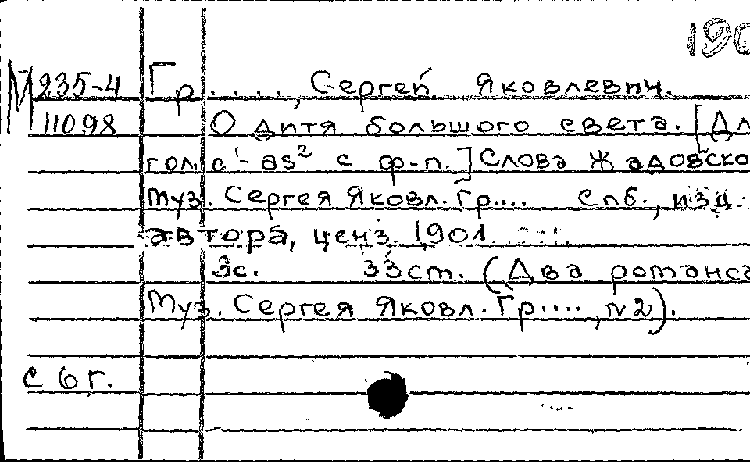 190
М 235-4 Гр....., Сергей Яковлевич.
11098 О дитя большого света. [Дл
гол. c¹-as² с ф-п.] Слова Жадовско
Муз. Сергея Яковл. Гр.... Спб., изд.
автора, ценз. 1901.
3с. 33см. (Два романса
Муз. Сергея Яковл. Гр...., №2).
с 6 г.